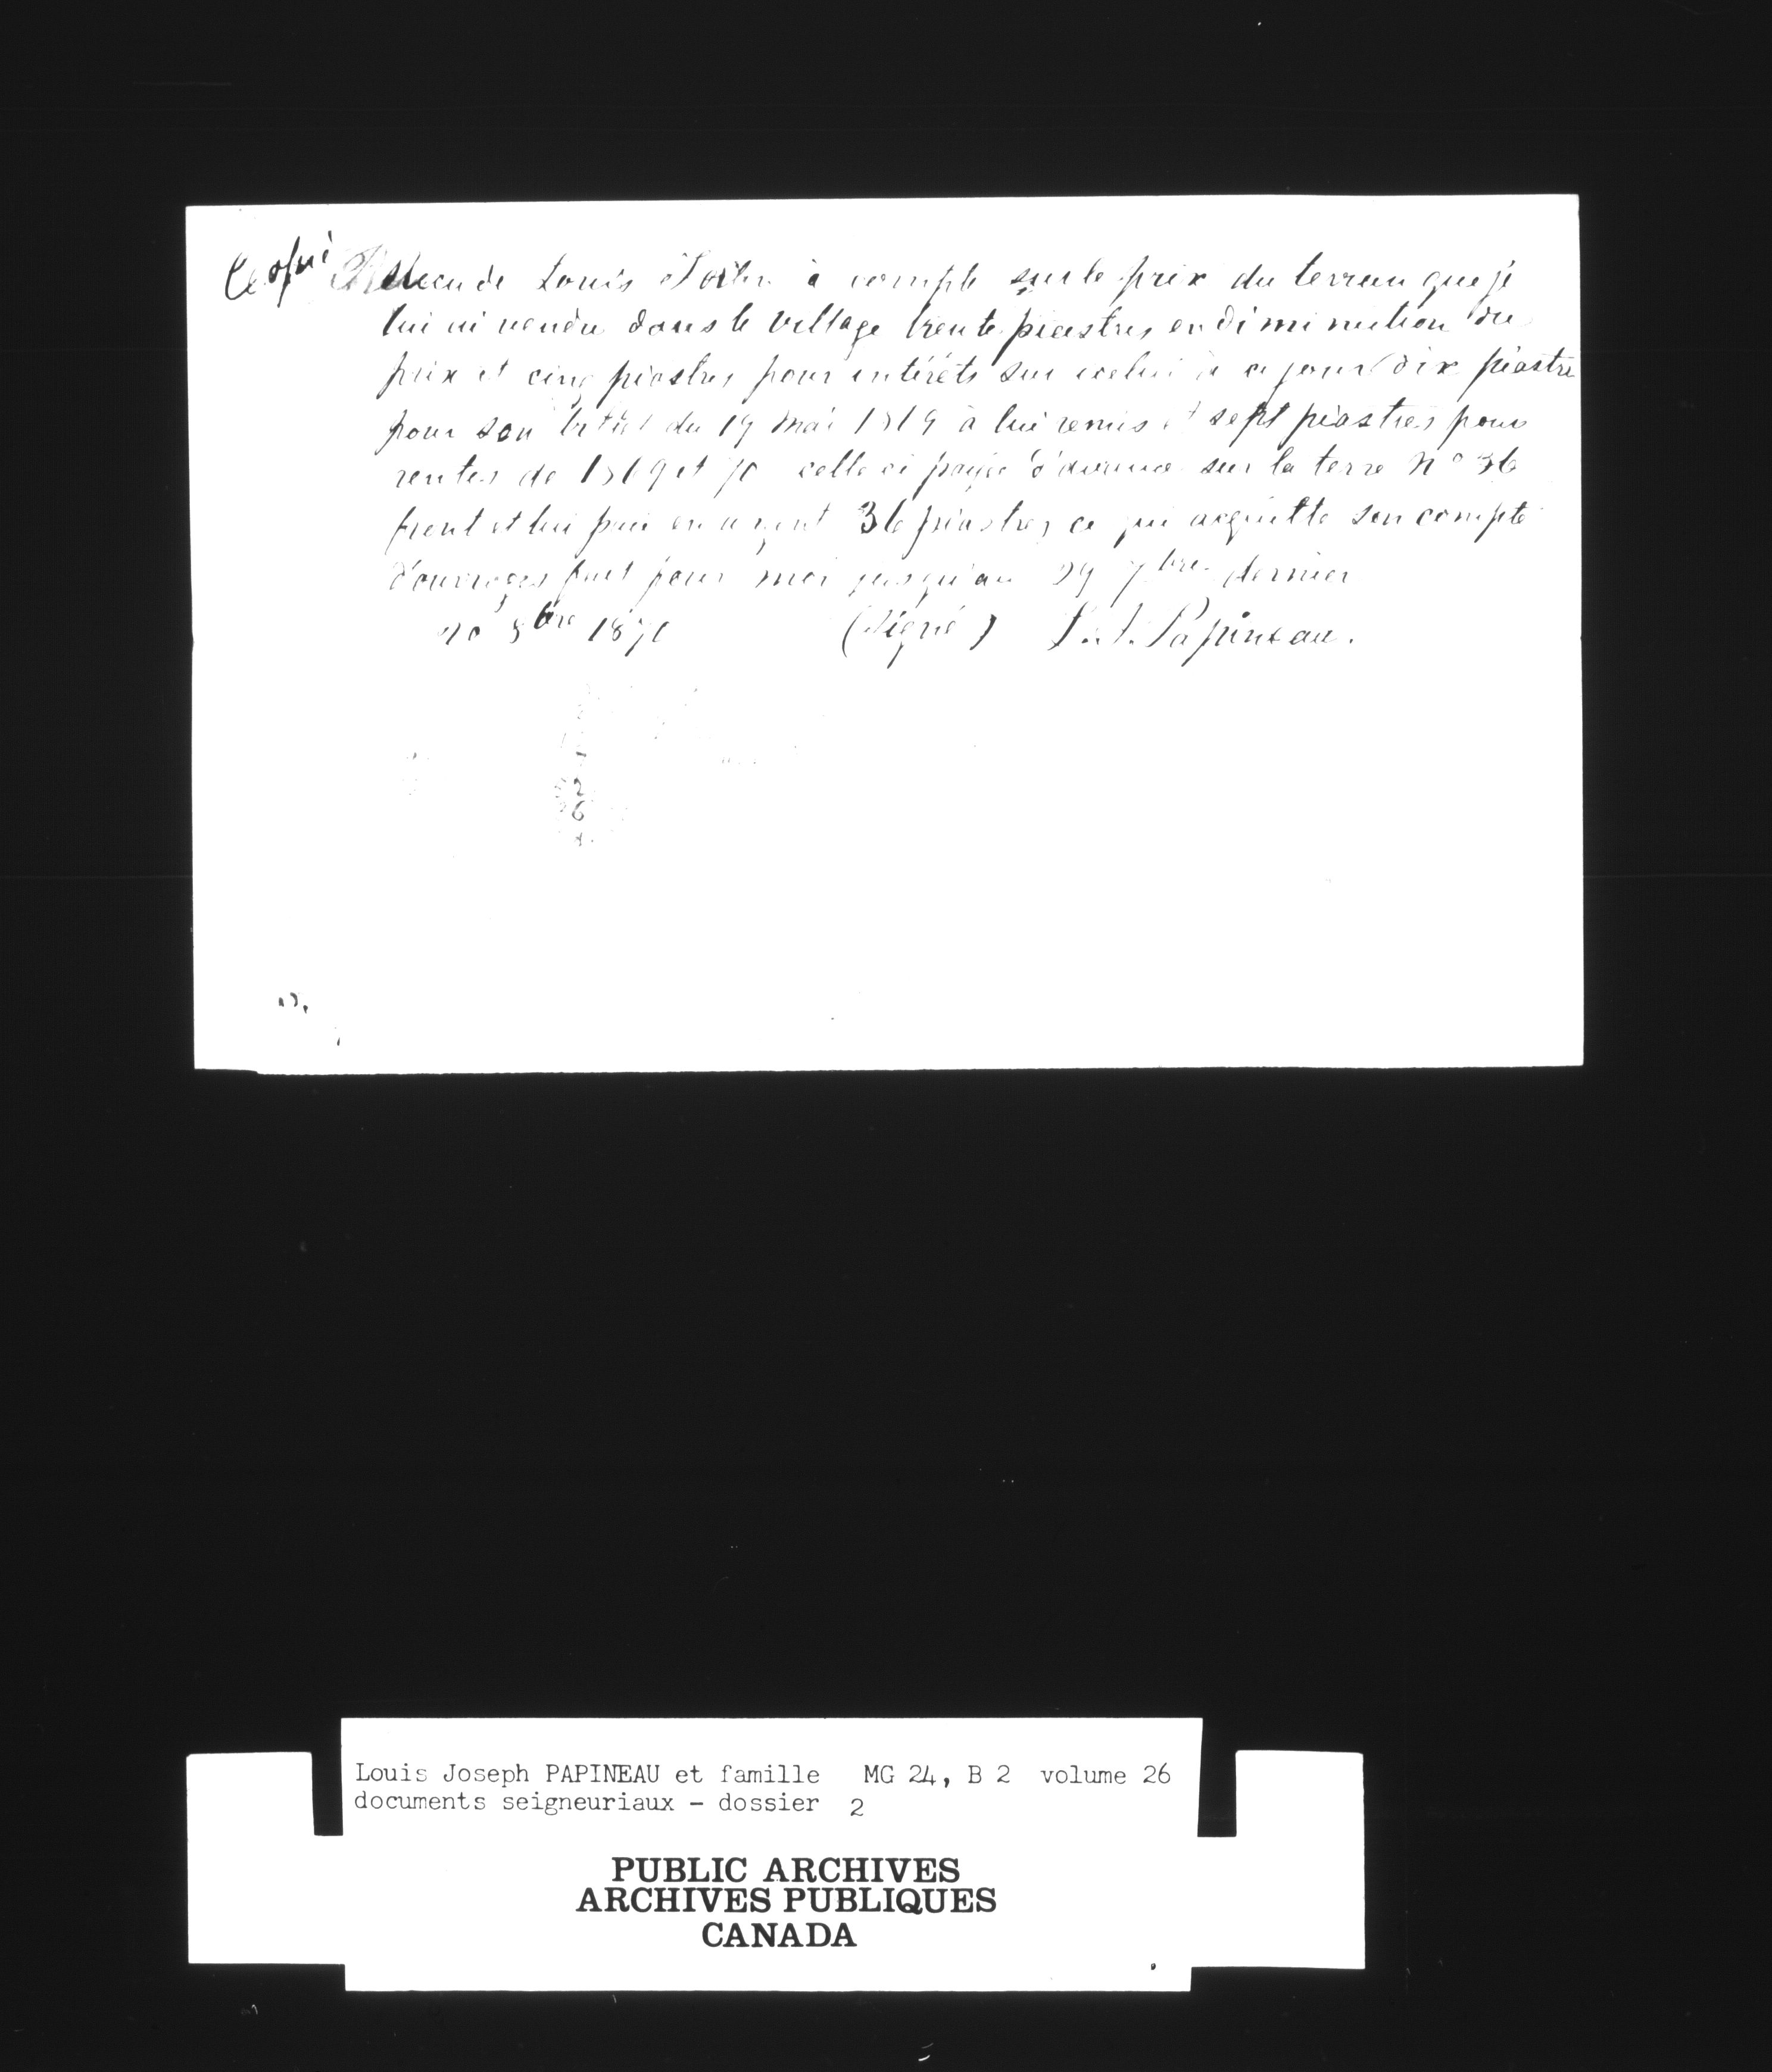 Copie Reçu de Louis à compte sur le prix du terrain que je
lui ai vendu dans le village trente piastres en diminution du
prix et cinq piastres pour intérêts sur celui à ce jour dix piastre
pour son billet du 19 mai 1869 à lui remis et sept piastres pour
rentes de 1869 et 70 celle ci payée d'avance sur la terre No 36
front et lui paié en argent 36 piastres ce qui acquitte son compte
d'ouvrages fait pour moi jusqu'au 29 7bre dernier
8bre 1870 (Signé) L. J. Papineau.
26
Louis Joseph PAPINEAU et famille MG 24, B 2 volume 26
documents seigneuriaux - dossier 2
PUBLIC ARCHIVES
ARCHIVES PUBLIQUES
CANADA